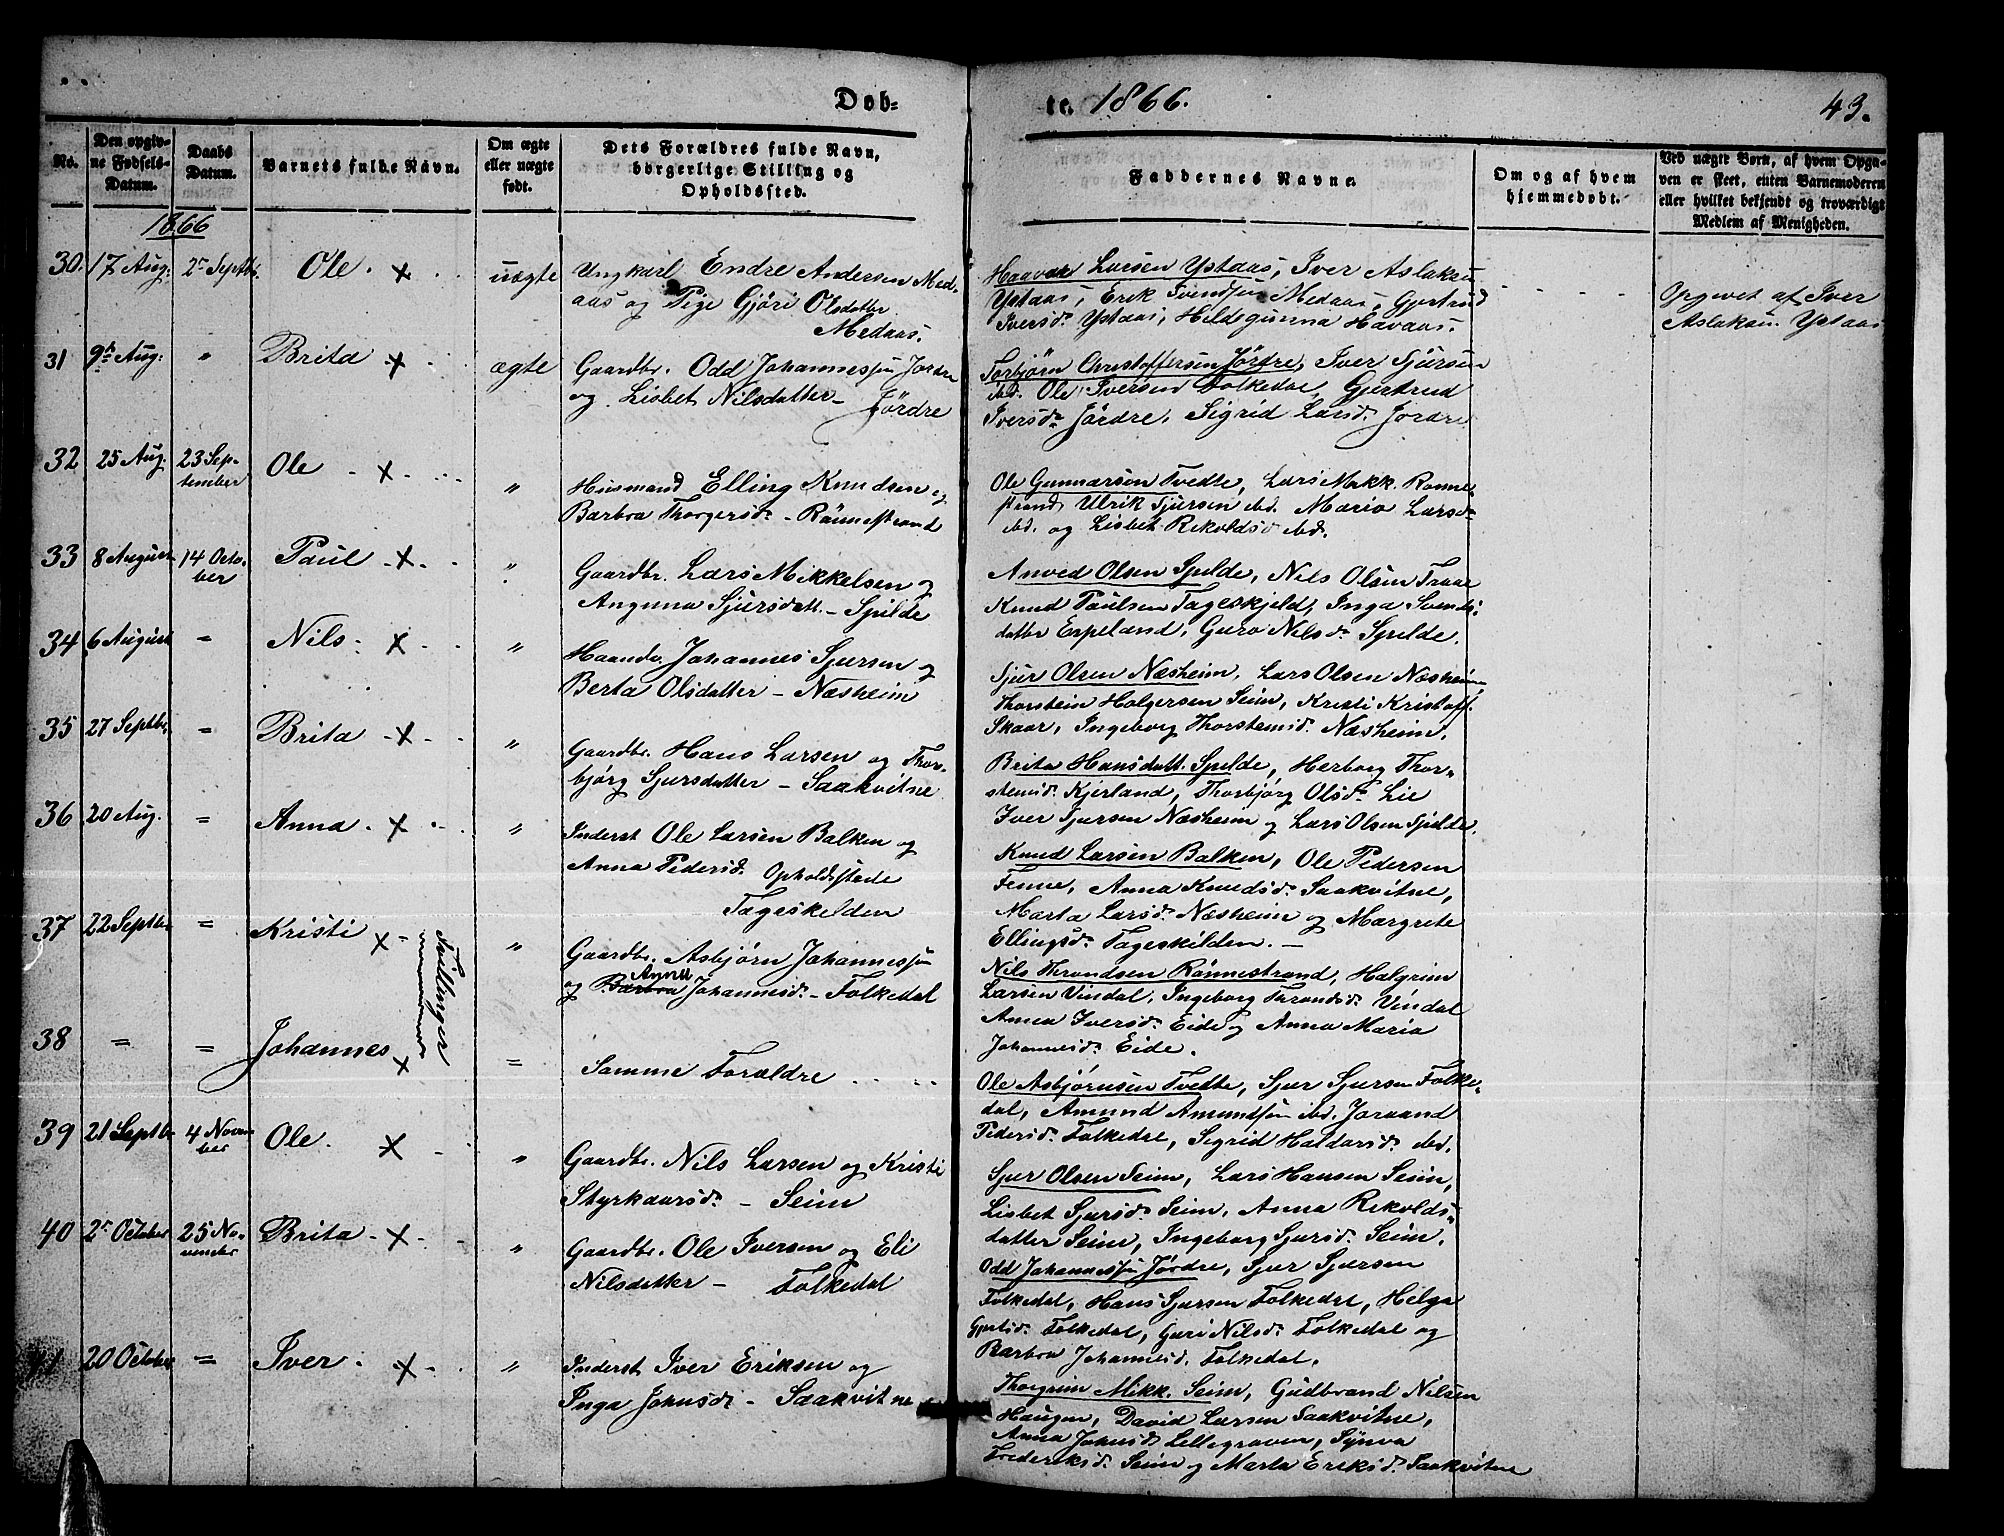 Døb-
te. 1866.
43.
No.
Den opgiv-
ne Fødsels-
Datum.
Daabs
Datum.
Barnets fulde Navn.
Om ægte
eller uægte
født.
Dets Forældres fulde Navn,
borgerlige Stilling og
Opholdssted.
Faddernes Navne.
Om og af hvem
hjemmedøbt.
Ved uægte Børn, af hvem Opga-
ven er skeet, enten Barnemoderen
eller hvilket bekjendt og troværdigt
Medlem af Menigheden.
1866
30. 17 Aug. 2n Septb. Ole. x uægte
Ungkarl Endre Andersen Med-
aas og Pige Gjøri Olsdatter
Medaas.
Haavar Larsen Ystaas, Iver Aslaksn
Ystaas, Erik Svendsen Medaas, Gjertrud
Iversd. Ystaas, Hildegunna Havaas.
Opgivet af Iver
Aslaksn Ystaas
31 9de Aug. " Brita x ægte
Gaardbr. Odd Johannessen Jördre
og Lisbet Nilsdatter - Jördre
Torbjörn Christoffersen Jördre, Iver Sjursen
ibd. Ole Iversen Folkedal, Gjertrud
Iversd. Jördre, Sigrid Larsd. Jördre
32 25 Aug. 23 Sep-
tember Ole - x "
Husmand Elling Knudsen og
Barbra Thorgersd. - Rönnestrand
Ole Gunnarson Tvedte, Lars Mikk. Rönne-
strand, Ulrik Sjursen ibd. Maria Larsd.
ibd. og Lisbet Rekoldsd ibd.
33 8 August 14 Octo-
ber Paul - x "
Gaardbr. Lars Mikkelsen og
Angunna Sjursdatt. - Spilde
Anved Olsen Spilde, Nils Olsen Traae
Knud Paulsen Tageskjeld, Inga Svends-
datter Espeland, Guro Nilsd. Spilde.
34 6 August = Nils - x "
Haandv. Johannes Sjursen og
Berta Olsdatter - Næsheim
Sjur Olsen Næsheim, Lars Olsen Næsheim
Thorstein Holgersen Seim, Kristi Kristoff.
Skaar, Ingeborg Thorsteinsd. Næsheim.
35 27 Septbr. = Brita - x "
Gaardbr. Hans Larsen og Thor-
bjørg Sjursdatter - Saakvitne
Brita Hansdatt. Spilde, Herborg Thor-
steinsd. Kjerland, Thorbjørg Olsd. Lie
Iver Sjursen Næsheim og Lars Olsen Spilde.
36 20 Aug. = Anna - x "
Inderst Ole Larsen Balken og
Anna Pedersd. Opholdsstede
Tageskelden
Knud Larsen Balken, Ole Pedersen
Tenne, Anna Knudsd. Saakvitne,
Marta Larsd. Næsheim og Margrete
Ellingsd. Tageskilden. -
37 22 Septbr. = Kristi x - Tvillinger "
Gaardbr. Asbjørn Johannessen
og Barbra Anna Johannesd. - Folkedal
Nils Throndsen Rönnestrand, Halgrim
Larsen Vindal, Ingeborg Throndsd. Vindal
Anna Iversd. Eide og Anna Maria
Johannesd. Eide.
38 = = Johannes x =
Samme Forældre
Ole Asbjørnsen Tvedte, Sjur Sjursen Folke-
dal, Amund Amundsen ibd. Joraand
Pedersd. Folkedal, Sigrid Haldorsd. ibd.
39 21 Septbr 4 Novem-
ber Ole. x "
Gaardbr. Nils Larsen og Kristi
Styrkaarsd. - Seim
Sjur Olsen Seim, Lars Hansen Seim,
Lisbet Sjursd. Seim, Anna Rekolds-
datter Seim, Ingeborg Sjursd. Seim.
40 2n October 25 No-
vember Brita - x "
Gaardbr. Ole Iversen og Eli
Nilsdatter - Folkedal
Odd Johannessen Jördre, Sjur Sjursen
Folkedal, Hans Sjursen Folkedal, Helga
Gjertsd. Folkedal, Guri Nilsd. Folkedal og
Barbra Johannesd. Folkedal.
41 20 October = Iver - x "
Inderst Iver Eriksen og
Inga Johnsd. - Saakvitne
Thorgrim Mikk. Seim, Gudbrand Nilsen
Haugen, David Larsen Saakvitne,
Anna Johnsd Lillegraven, Synva
Frederiksd. Seim og Marta Eriksd. Saakvitne